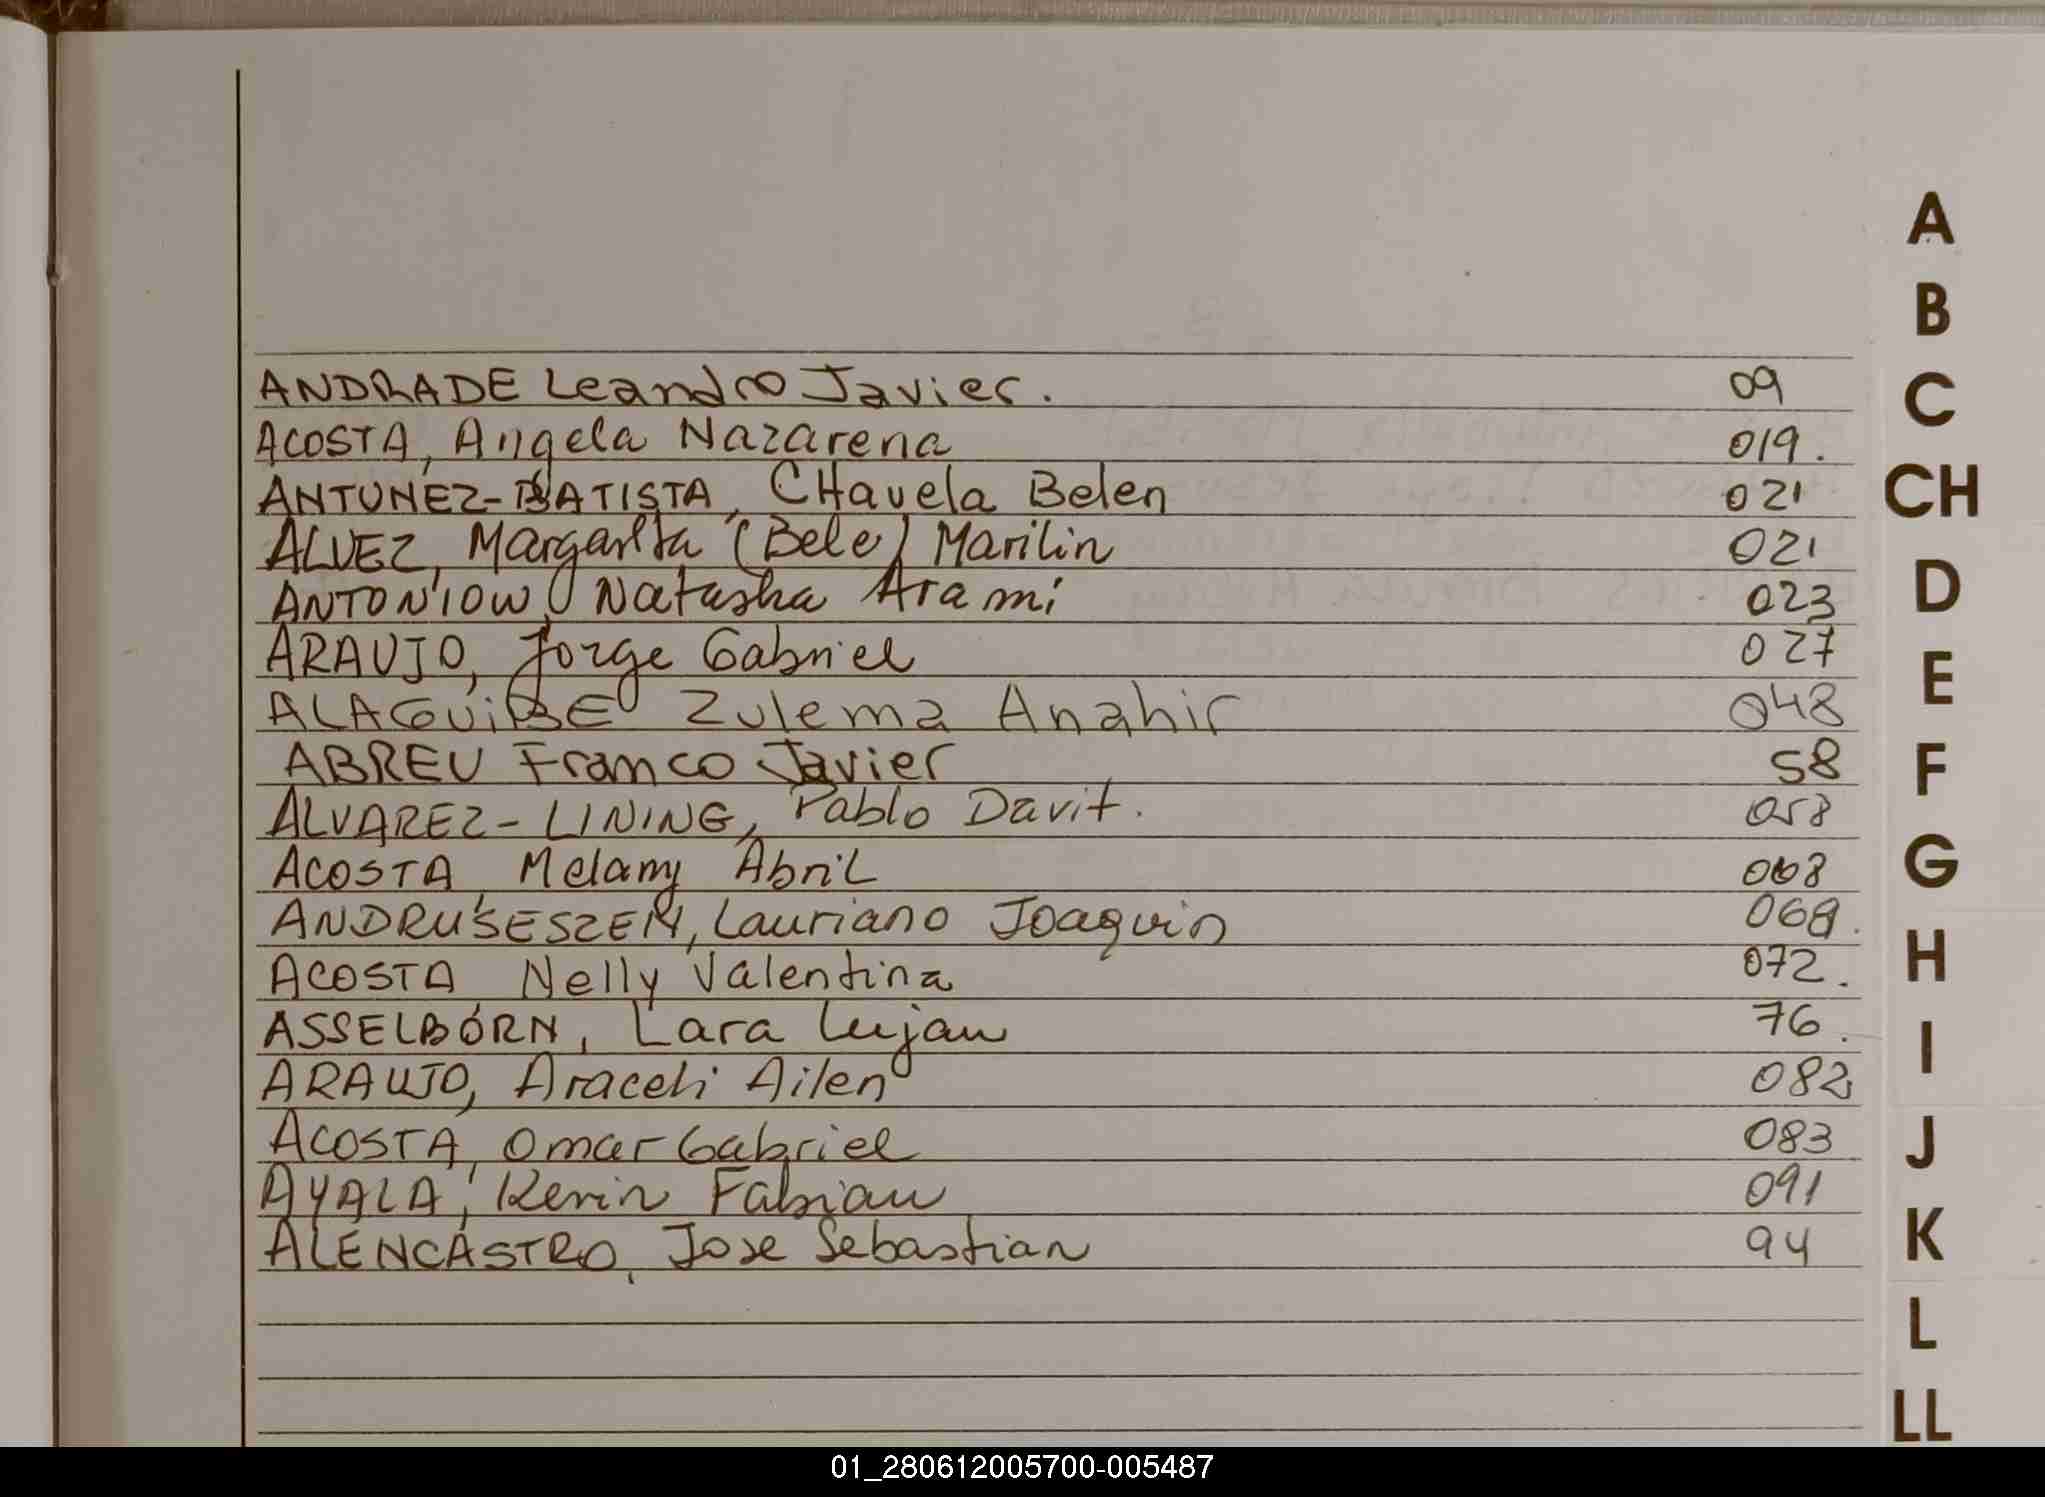 A
B
C
CH
D
E
F
G
H
I
J
K
L
LL
ANDRADE Leandro Javier. 09
ACOSTA, Angela Nazarena 019.
ANTUNEZ-BATISTA, CHavela Belen 021
ALVEZ, Margarita (Bele) Marilin 021
ANTONIOW, Natasha Arami 023
ARAUJO, Jorge Gabriel 027
Zulema Anahir 048
ABREU Franco Javier 58
ALVAREZ-LINING, Pablo Davit. 058
ACOSTA, Melany Abril 068
Lauriano Joaquin 069.
ACOSTA Nelly Valentina 072.
ASSELBORN, Lara Lujan 76.
ARAUJO, Araceli Ailen 082
ACOSTA, Omar Gabriel 083
AYALA, Kevin Fabian 091
ALENCASTRO, Jose Sebastian 94
01_280612005700-005487